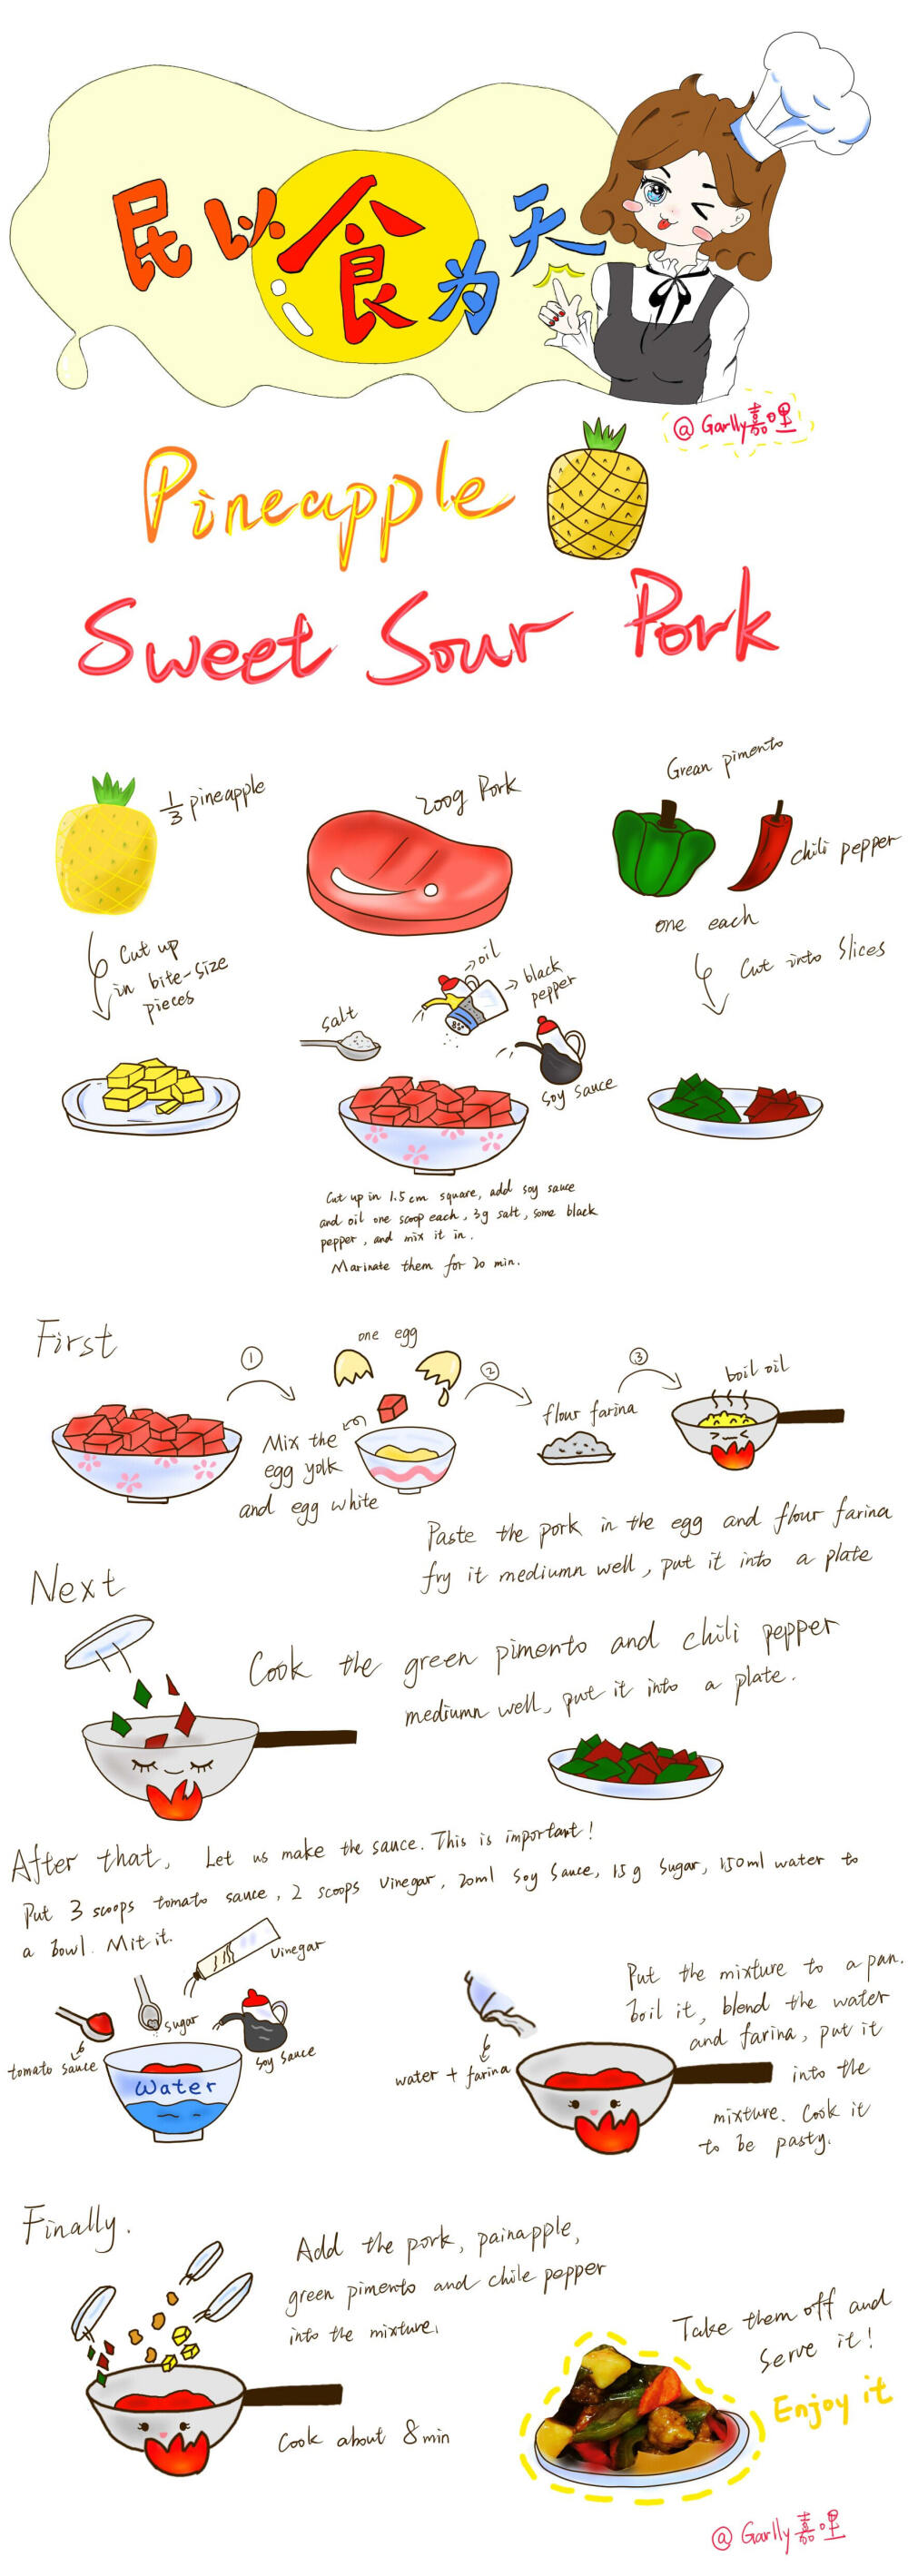 民以食为天
@Garlly嘉哩
Pineapple
Sweet Sour Pork
1/3 pineapple
Cut up
in bite-size
pieces
200g Pork
salt
oil
black
pepper
Soy Sauce
Cut up in 1.5cm square, add soy sauce
and oil one scoop each, 3g salt, some black
pepper, and mix it in.
Marinate them for 20 min.
Grean pimento
chili pepper
one each
Cut into Slices
First
①
one egg
Mix the
egg yolk
and egg white
②
flour farina
③
boil oil
Paste the pork in the egg and flour farina
fry it mediumn well, put it into a plate
Next
Cook the green pimento and chili pepper
mediumn well, put it into a plate.
After that, Let us make the sauce. This is important!
Put 3 scoops tomato sauce, 2 scoops vinegar, 20ml Soy Sauce, 15g Sugar, 150ml water to
a bowl. Mit it.
Vinegar
sugar
tomato sauce
Soy Sauce
Water
water + farina
Put the mixture to a pan.
boil it, blend the water
and farina, put it
into the
mixture. Cook it
to be pasty.
Finally.
Add the pork, painapple,
green pimento and chile pepper
into the mixture,
Cook about 8 min
Take them off and
Serve it!
Enjoy it
@Garlly嘉哩